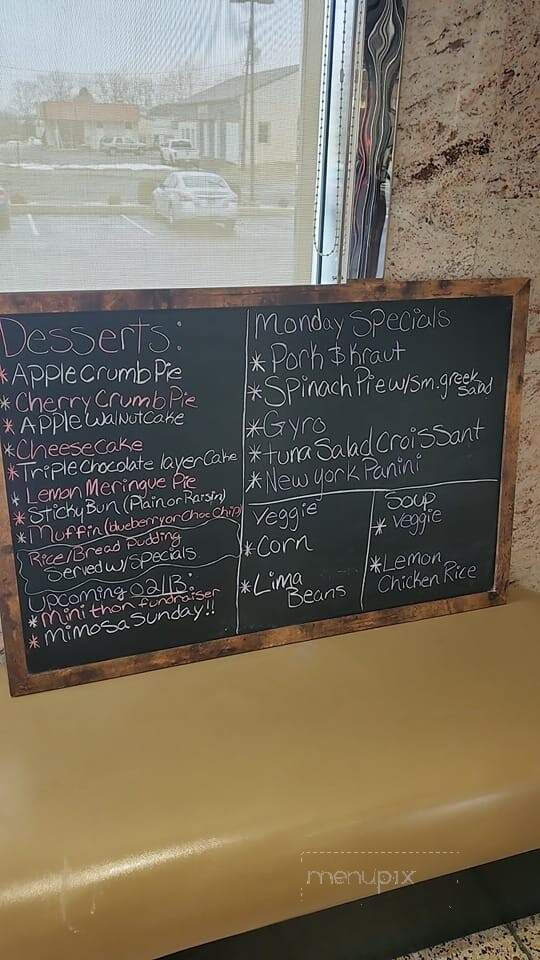 Desserts:
* Apple Crumb Pie
* Cherry Crumb Pie
* Apple Walnut Cake
* Cheesecake
* Triple Chocolate layer Cake
* Lemon Meringue Pie
* Sticky Bun (Plain or Raisin)
* Muffin (blueberry or Choc Chip)
Rice/Bread Pudding
Served w/ Specials
Upcoming 02/13:
* Mini thon fundraiser
* Mimosa Sunday!!
Monday Specials
* Pork & Kraut
* Spinach Pie w/ Sm. greek Salad
* Gyro
* tuna Salad Croissant
* New York Panini
Veggie
* Corn
* Lima
Beans
Soup
* Veggie
* Lemon
Chicken Rice
menupix